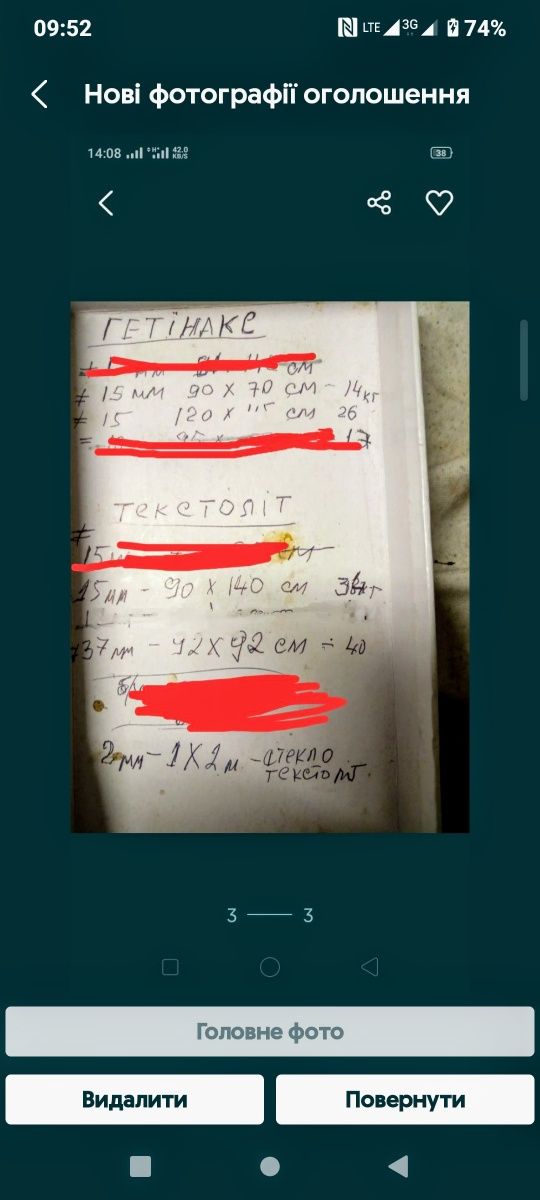 09:52
LTE 3G 74%
Нові фотографії оголошення
14:08 42.0 KB/S 38
ГЕТІНАКС
см
≠ 15 мм 90 х 70 см - 14кг
≠ 15 120 х 115 см 26
= 17
ТЕКСТОЛІТ
≠
15м см
15мм - 90 х 140 см
37мм - 92х92 см ÷ 40
2мм - 1х2 м - стекло
текстоліт
3 — 3
Головне фото
Видалити
Повернути